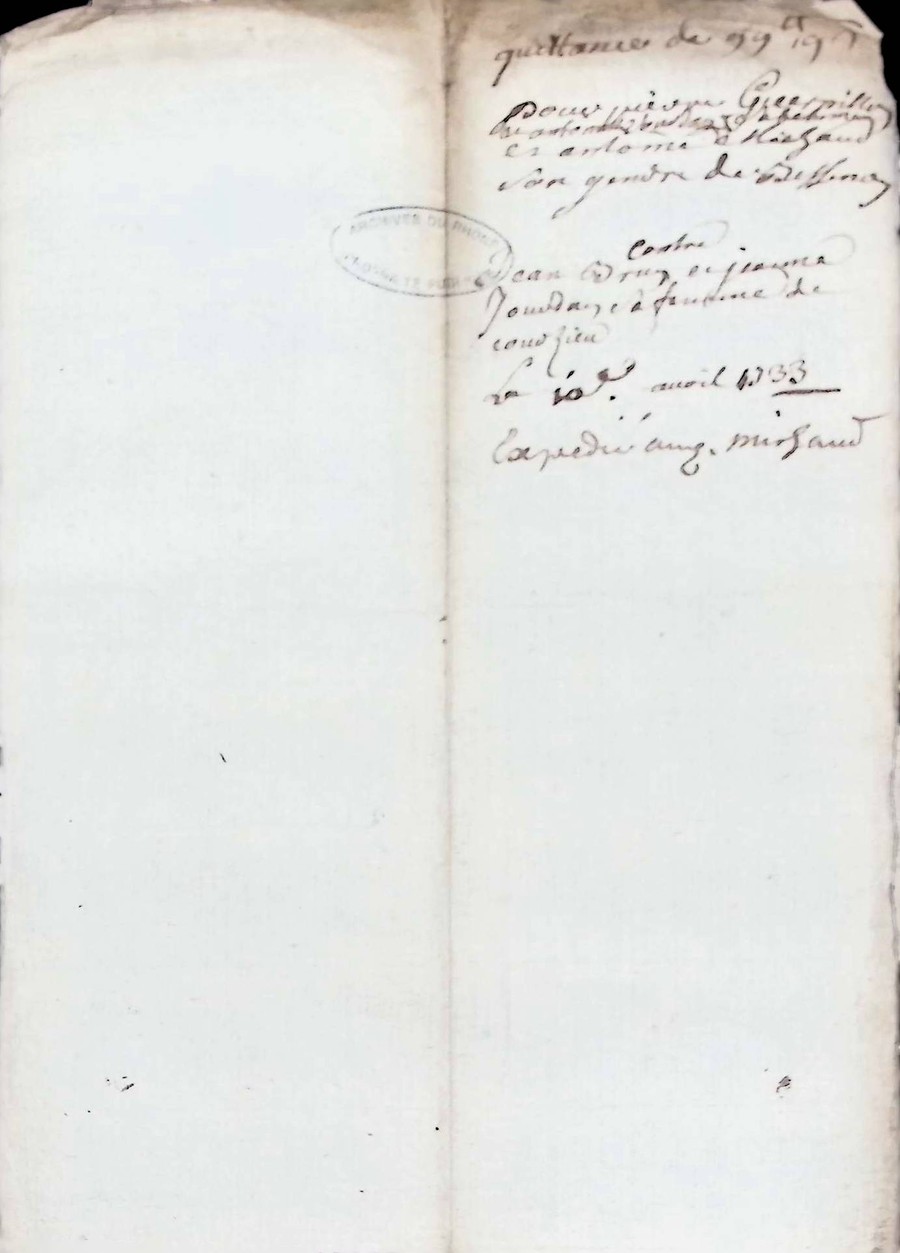 quittance de 99ᵗᵗ 19ˢ
Pour pierre Guerpillon
et antoine Michaud
son gendre de Bessenay
ARCHIVES DU RHONE
PROPRIÉTÉ PUBLIQUE
contre
Jean Bruy et jeanne
Jourdan sa femme de
courzieu
Le 10e. avril 1733
Expedié aud. michaud